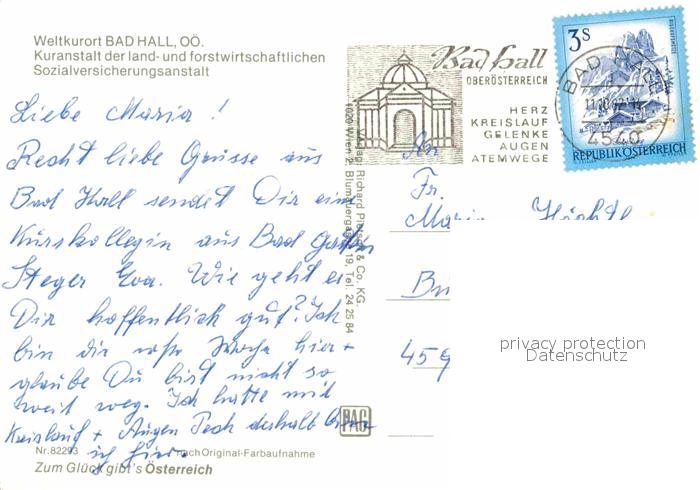 Weltkurort BAD HALL, OÖ.
Kuranstalt der land- und forstwirtschaftlichen
Sozialversicherungsanstalt
Liebe Maria!
Recht liebe Grüsse aus
Bad Hall sendet Dir eine
Kurskollegin aus Bad
Steger Eva. Wie geht es
Dir hoffentlich gut? Ich
bin die Woche hier +
glaube Du bist nicht so
weit weg. Ich hatte mit
Kreislauf + Augen Pech deshalb
ich hier.
Nr. 82293 nach Original-Farbaufnahme
Zum Glück gibt's Österreich
Richard Pietsch & Co. KG.
1020 Wien 2, Blumauergasse 19, Tel. 24 25 84
PAG
Bad Hall
OBERÖSTERREICH
HERZ
KREISLAUF
GELENKE
AUGEN
ATEMWEGE
3S
BAD HALL
4540
REPUBLIK ÖSTERREICH
An
Fr.
Maria
459
privacy protection
Datenschutz